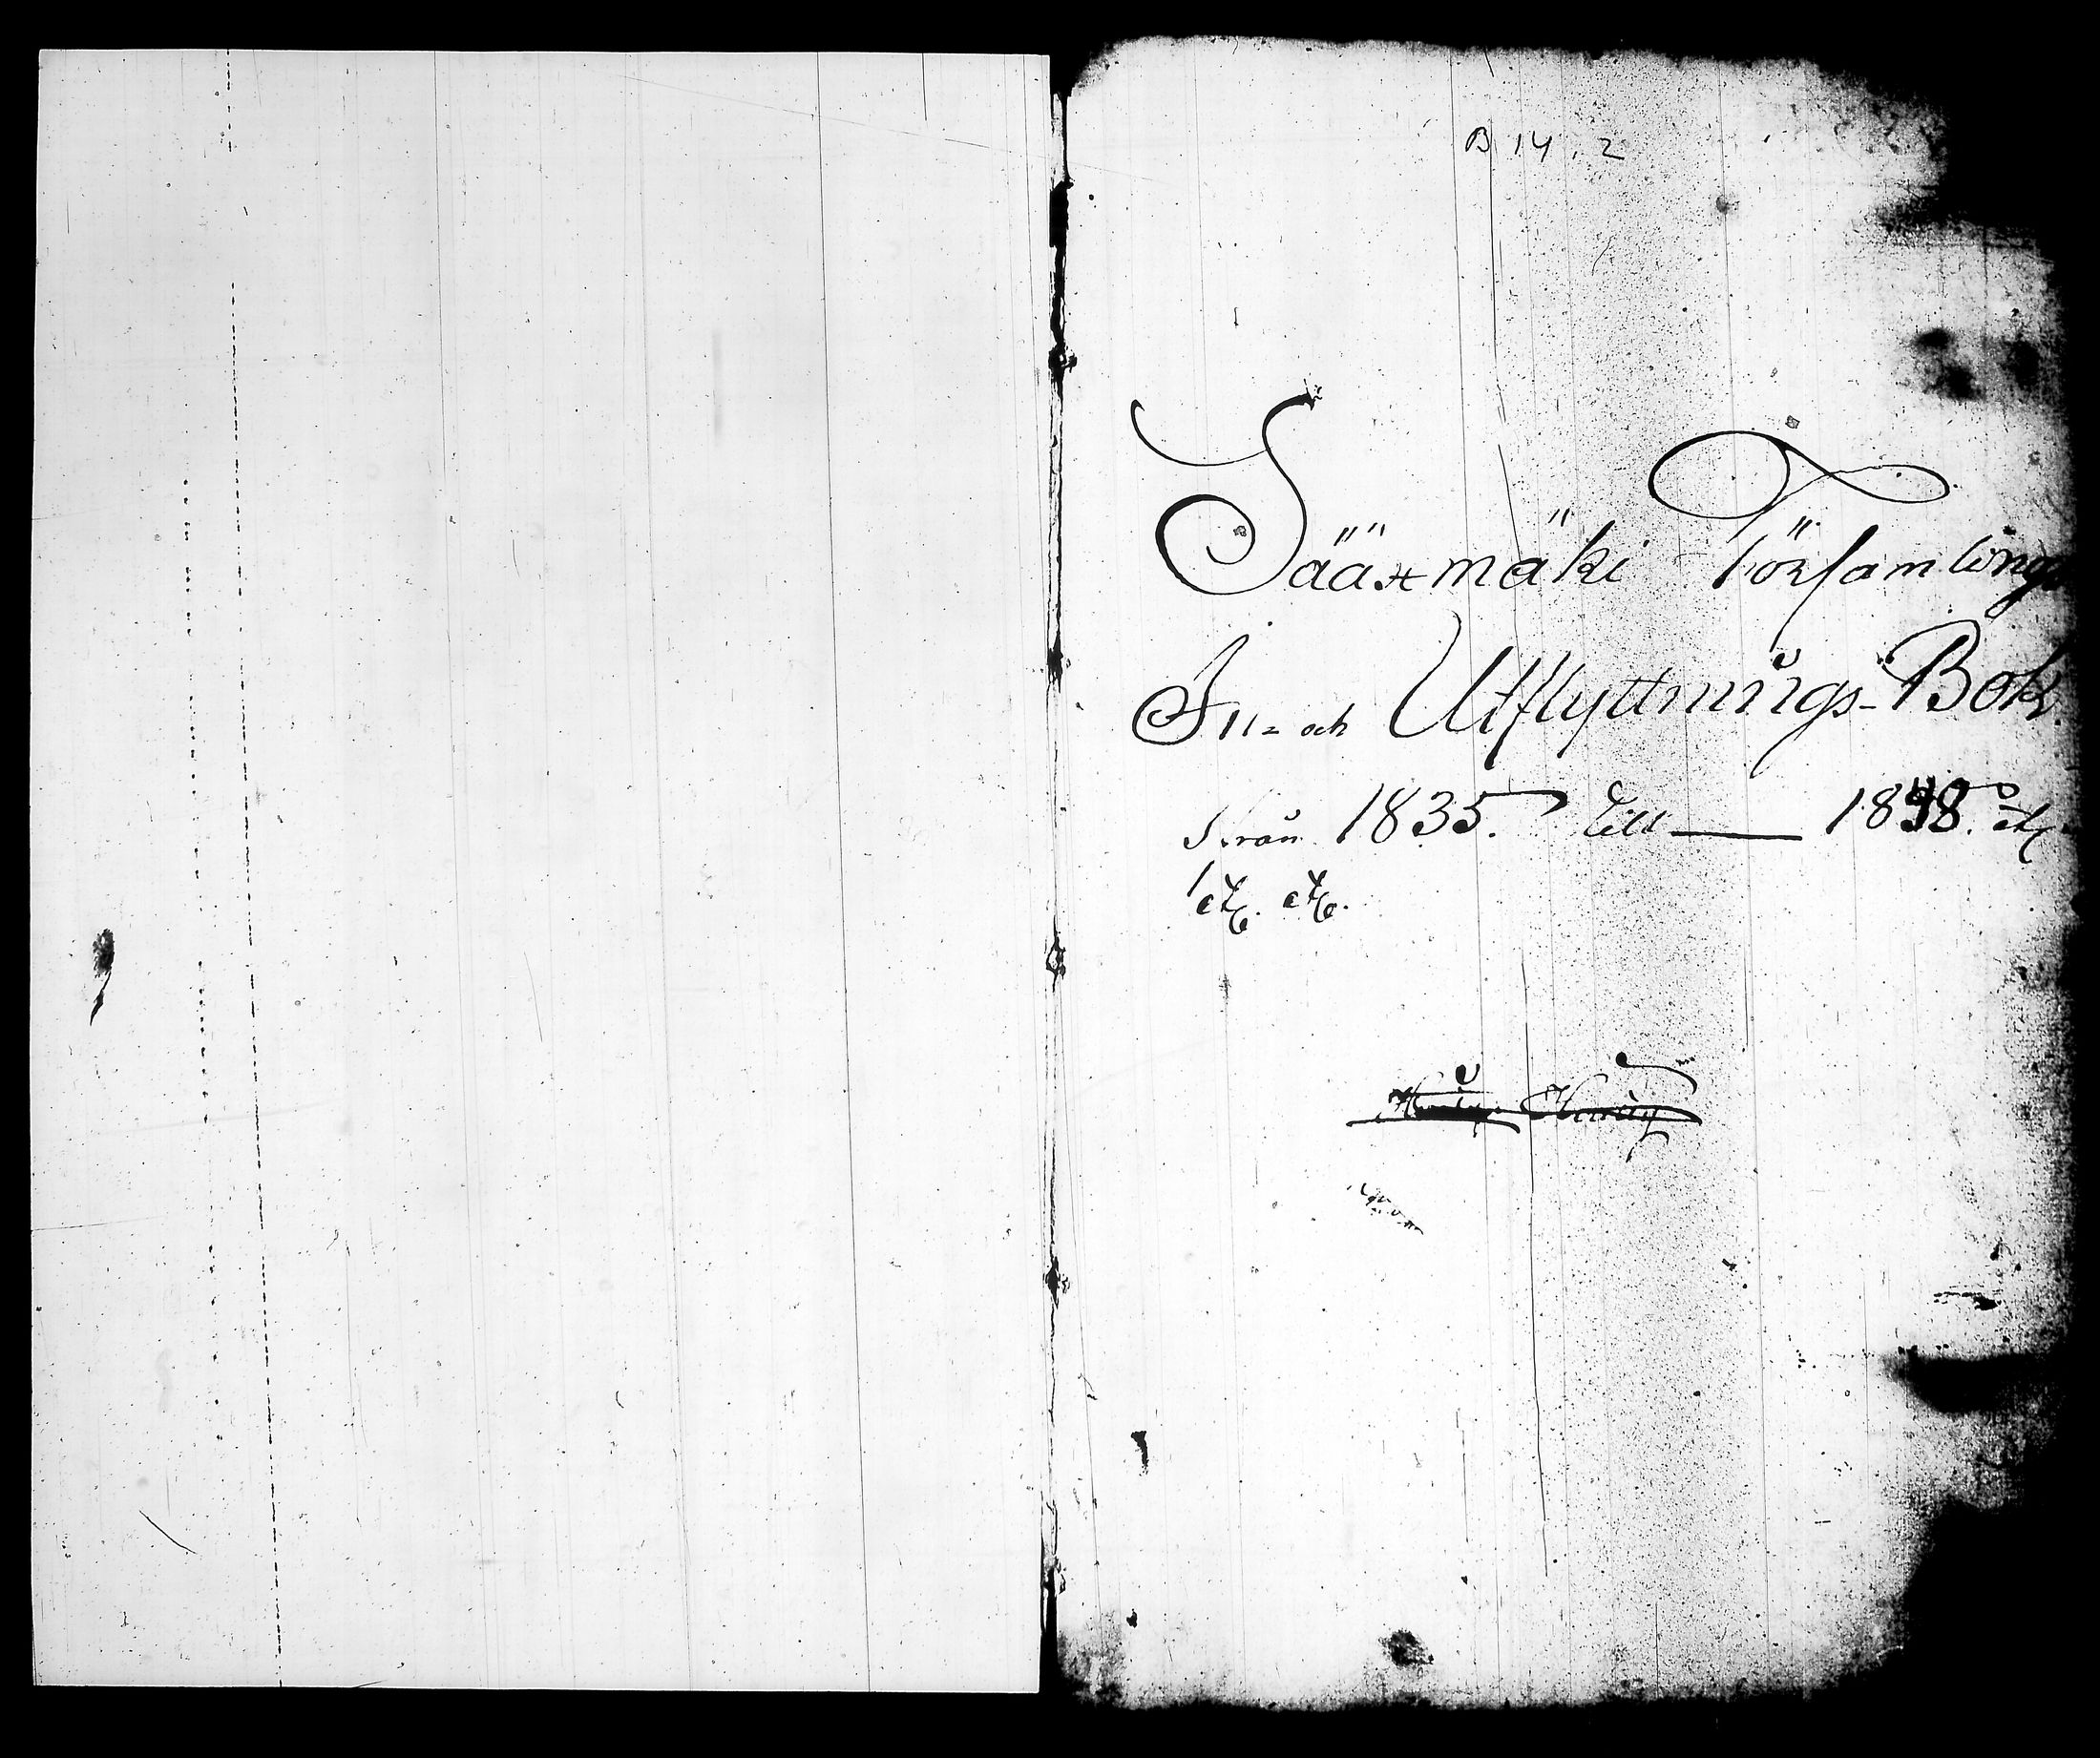 B 14.2
Sääxmäki Församlings
In= och Utflyttnings-Bok
från 1835. till — 1848. etc
etc. etc.